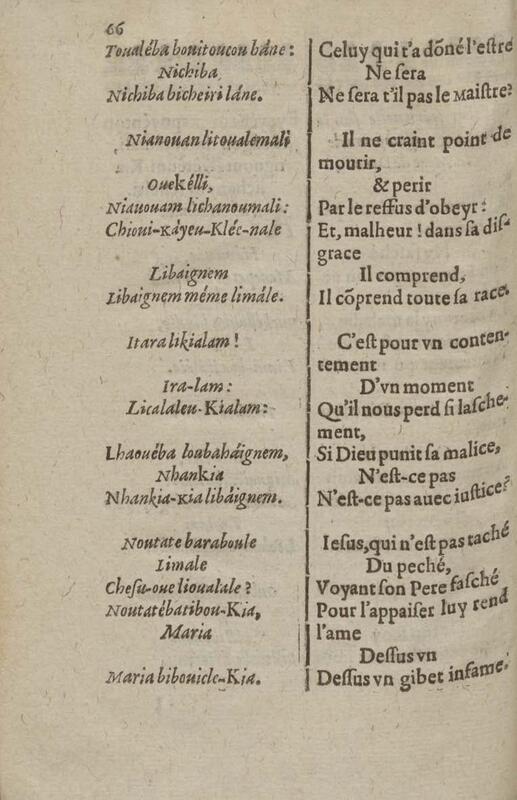 66
Toualéba bonitoucou báne :
Nichiba
Nichiba bicheiri láne.
Nianouan litoualemali
Ouekélli,
Niauouam lichanoumali :
Chioui-Káyeu-Kléc-nale
Libaignem
Libaignem méme limále.
Itara likialam !
Ira-lam :
Licalaleu-Kialam :
Lhaouéba loubaháignem,
Nhankia
Nhankia-Kia libáignem.
Noutate baraboule
Iimale
Chesu-oue lioualale ?
Noutatébatibou-Kia,
Maria
Maria bibouicle-Kia.
Celuy qui t'a dõné l'eſtre
Ne ſera
Ne ſera t'il pas le Maiſtre?
Il ne craint point de
mourir,
& perir
Par le reffus d'obeyr :
Et, malheur ! dans ſa diſ-
grace
Il comprend,
Il cõprend toute ſa race.
C'eſt pour vn conten-
tement
D'vn moment
Qu'il nous perd ſi laſche-
ment,
Si Dieu punit ſa malice,
N'eſt-ce pas
N'eſt-ce pas auec iuſtice?
Ieſus, qui n'eſt pas taché
Du peché,
Voyant ſon Pere faſché
Pour l'appaiſer luy rend
l'ame
Deſſus vn
Deſſus vn gibet infame.